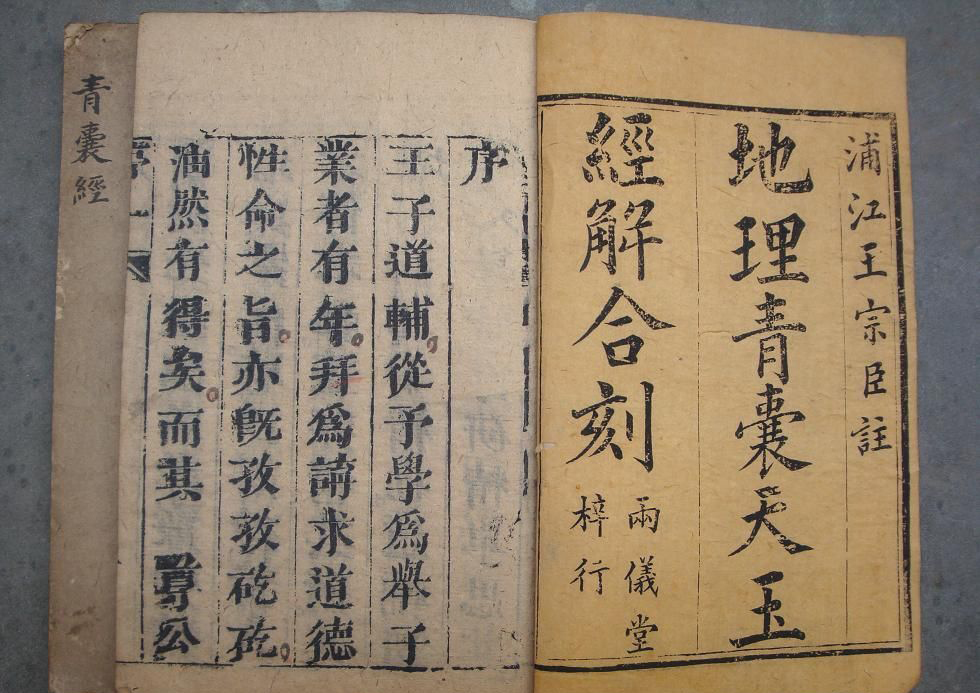 浦江王宗臣註
地理青囊天玉
經解合刻
兩儀堂
梓行
序
王子道輔從予學爲舉子
業者有年拜爲請求道德
性命之旨亦旣孜孜矻矻
油然有得矣而其尋公
青囊經